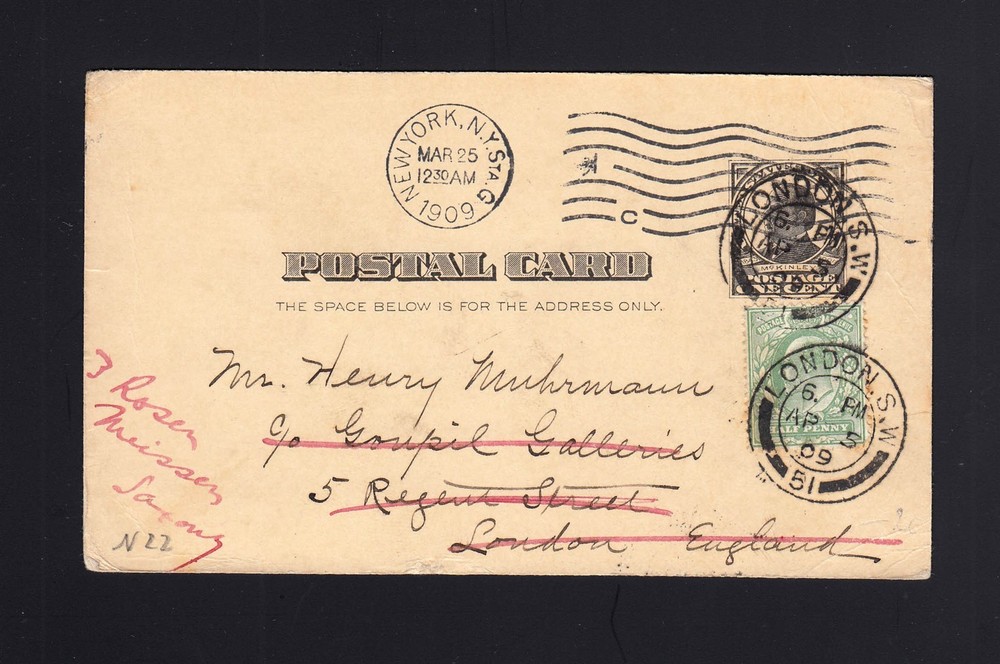 NEW YORK, N.Y. STA. G
MAR 25
12 30 AM
1909
C
LONDON. S.W
6. PM
AP 5
09
McKINLEY
POSTAGE
ONE CENT
POSTAL CARD
THE SPACE BELOW IS FOR THE ADDRESS ONLY.
POSTAGE
HALFPENNY
LONDON. S.W
6. PM
AP 5
09
51
Mr. Henry Muhrmann
c/o Goupil Galleries
5 Regent Street
London England
3 Rosen
Meissen
Saxony
N22
2